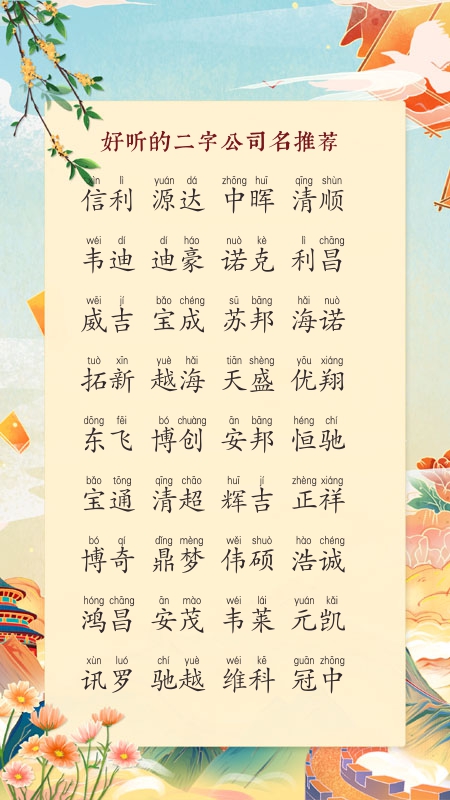 好听的二字公司名推荐
xìn lì yuán dá zhōng huī qīng shùn
信利 源达 中晖 清顺
wéi dí dí háo nuò kè lì chāng
韦迪 迪豪 诺克 利昌
wēi jí bǎo chéng sū bāng hǎi nuò
威吉 宝成 苏邦 海诺
tuò xīn yuè hǎi tiān shèng yōu xiáng
拓新 越海 天盛 优翔
dōng fēi bó chuàng ān bāng héng chí
东飞 博创 安邦 恒驰
bǎo tōng qīng chāo huī jí zhèng xiáng
宝通 清超 辉吉 正祥
bó qí dǐng mèng wěi shuò hào chéng
博奇 鼎梦 伟硕 浩诚
hóng chāng ān mào wéi lái yuán kǎi
鸿昌 安茂 韦莱 元凯
xùn luó chí yuè wéi kē guān zhōng
讯罗 驰越 维科 冠中